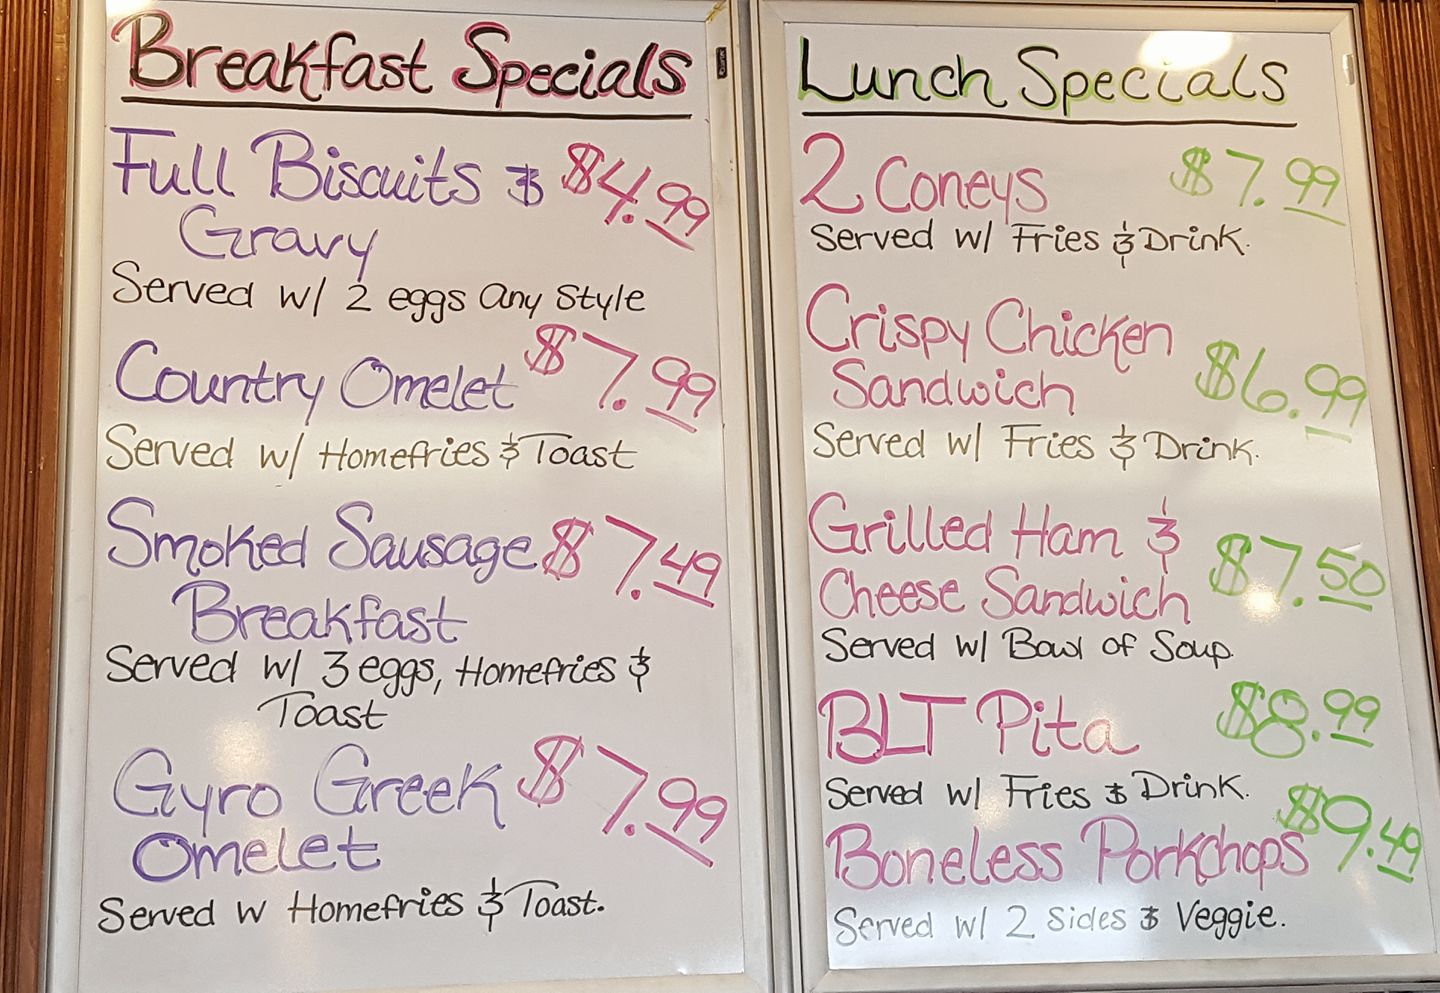 Breakfast Specials
Full Biscuits & $4.99
Gravy
Served w/ 2 eggs Any Style
Country Omelet $7.99
Served w/ Homefries & Toast
Smoked Sausage $7.49
Breakfast
Served w/ 3 eggs, Homefries &
Toast
Gyro Greek $7.99
Omelet
Served w Homefries & Toast.
Lunch Specials
2 Coneys $7.99
Served w/ Fries & Drink.
Crispy Chicken
Sandwich $6.99
Served w/ Fries & Drink.
Grilled Ham &
Cheese Sandwich $7.50
Served w/ Bowl of Soup
BLT Pita $8.99
Served w/ Fries & Drink.
Boneless Porkchops $9.49
Served w/ 2 Sides & Veggie.